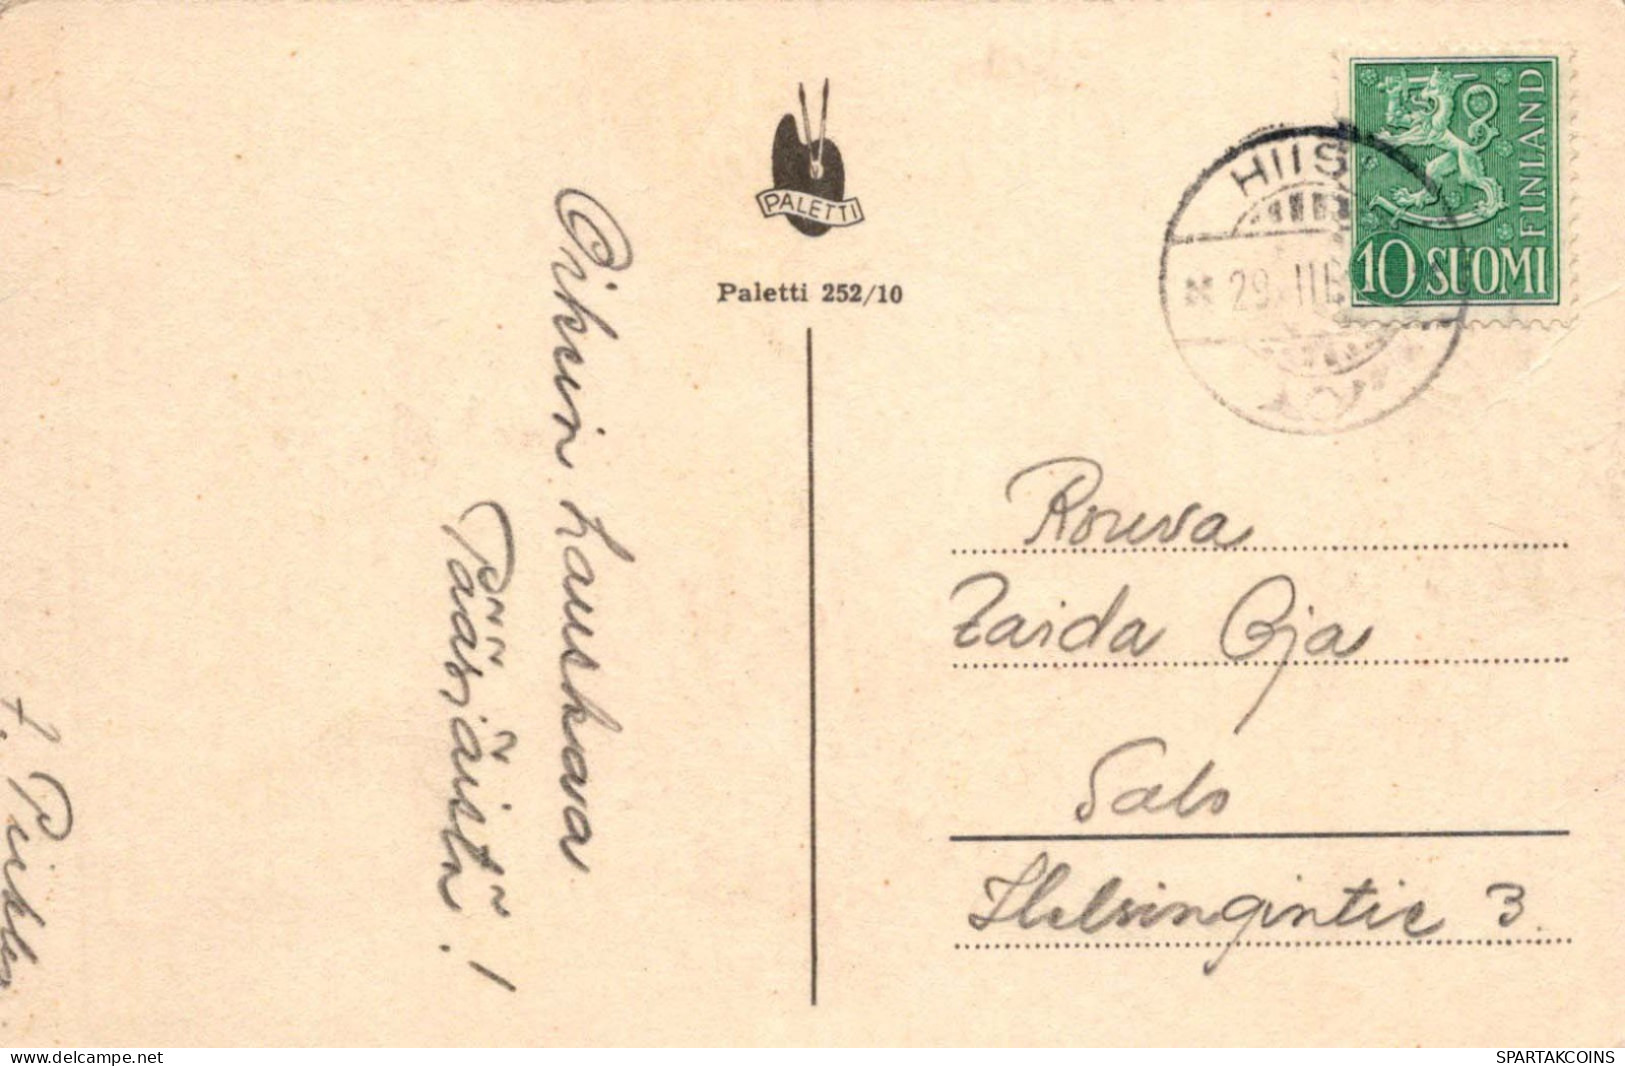 Oikein hauskaa
Pääsiäistä!
PALETTI
Paletti 252/10
SUOMI
FINLAND
10 SUOMI
HIIS
29.III
Rouva
Zaida Oja
Salo
Helsingintie 3.
delcampe.net
SPARTAKCOINS